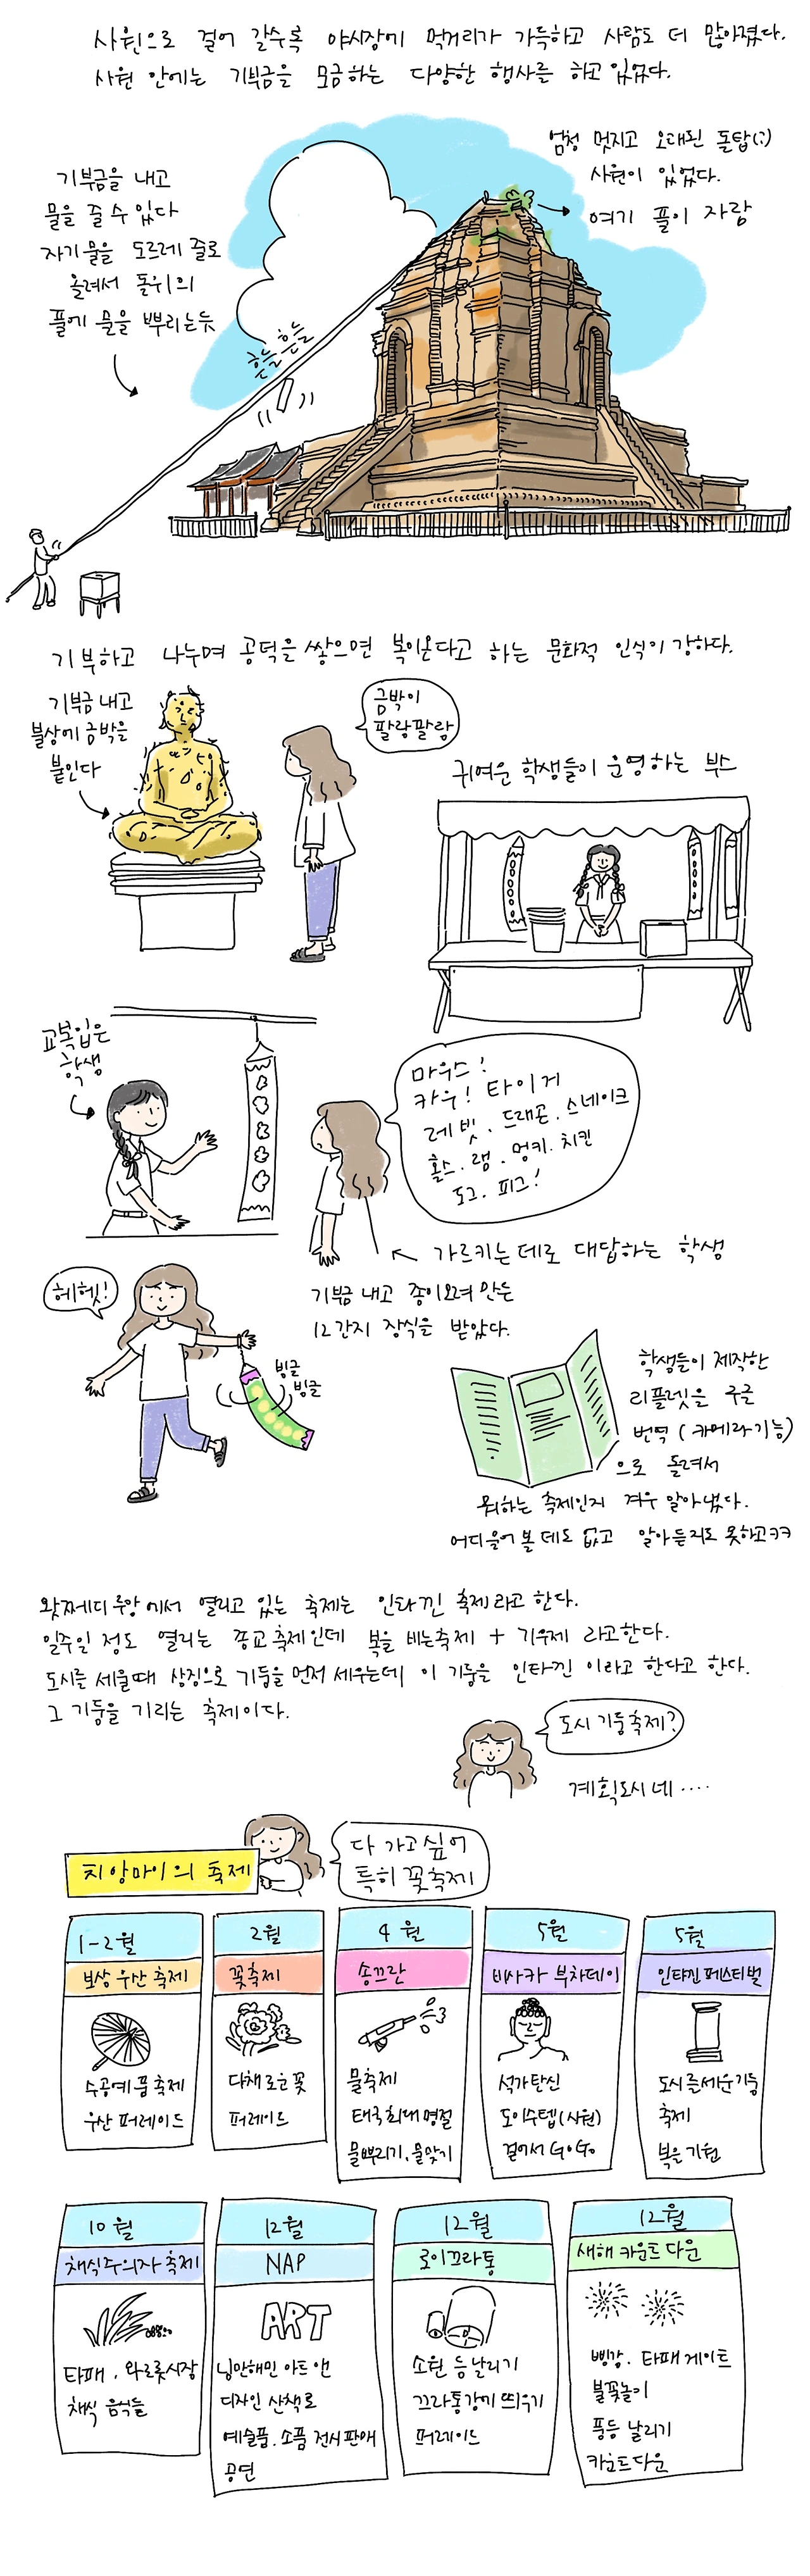 사원으로 걸어 갈수록 야시장에 먹거리가 가득하고 사람도 더 많아졌다.
사원 안에는 기부금을 모금하는 다양한 행사를 하고 있었다.
엄청 멋지고 오래된 돌탑(?)
사원이 있었다.
여기 풀이 자람
기부금을 내고
물을 줄 수 있다
자기 물을 도르레 줄로
올려서 돌위의
풀에 물을 뿌리는듯
흔들흔들
기부하고 나누며 공덕을 쌓으면 복이온다고 하는 문화적 인식이 강하다.
기부금 내고
불상에 금박을
붙인다
금박이
팔랑팔랑
귀여운 학생들이 운영하는 부스
교복입은
학생
마우스!
카우! 타이거
레빗. 드래곤. 스네이크
홀스. 램. 멍키. 치킨
도그. 피그!
가르키는 데로 대답하는 학생
기부금 내고 종이오려 만든
12간지 장식을 받았다.
헤헷!
빙글
빙글
학생들이 제작한
리플렛을 구글
번역 (카메라기능)
으로 돌려서
뭐하는 축제인지 겨우 알아냈다.
어디 물어볼 데도 없고 알아듣지도 못하고ㅋㅋ
왓쩨디루앙에서 열리고 있는 축제는 인타낀 축제라고 한다.
일주일 정도 열리는 종교축제인데 복을 비는축제 + 기우제 라고한다.
도시를 세울때 상징으로 기둥을 먼저 세우는데 이 기둥을 인타낀 이라고 한다고 한다.
그 기둥을 기리는 축제이다.
도시 기둥축제?
계획도시네....
치앙마이의 축제
다 가고싶어
특히 꽃축제
1-2월
보상 우산 축제
수공예품축제
우산 퍼레이드
2월
꽃축제
다채로운 꽃
퍼레이드
4월
송끄란
물축제
태국최대명절
물뿌리기. 물맞기
5월
비사카 부차데이
석가탄신
도이수텝(사원)
걸어서 GoGo
5월
인타낀 페스티벌
도시를세운기둥
축제
복을 기원
10월
채식주의자 축제
타패. 와로롯시장
채식 음식들
12월
NAP
ART
님만해민 아트 앤
디자인 산책로
예술품. 소품 전시판매
공연
12월
로이끄라통
소원 등날리기
끄라통강에 띄우기
퍼레이드
12월
새해 카운트 다운
삥강. 타패 게이트
불꽃놀이
풍등 날리기
카운트다운